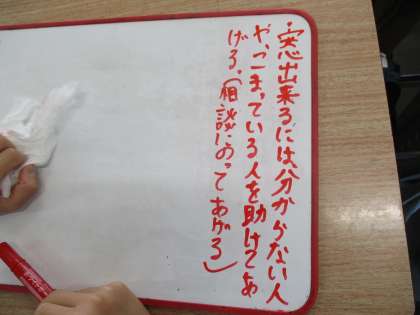 ・安心出来るには、分からない人
や、つまっている人を助けてあ
げる。(相談にのってあげる)